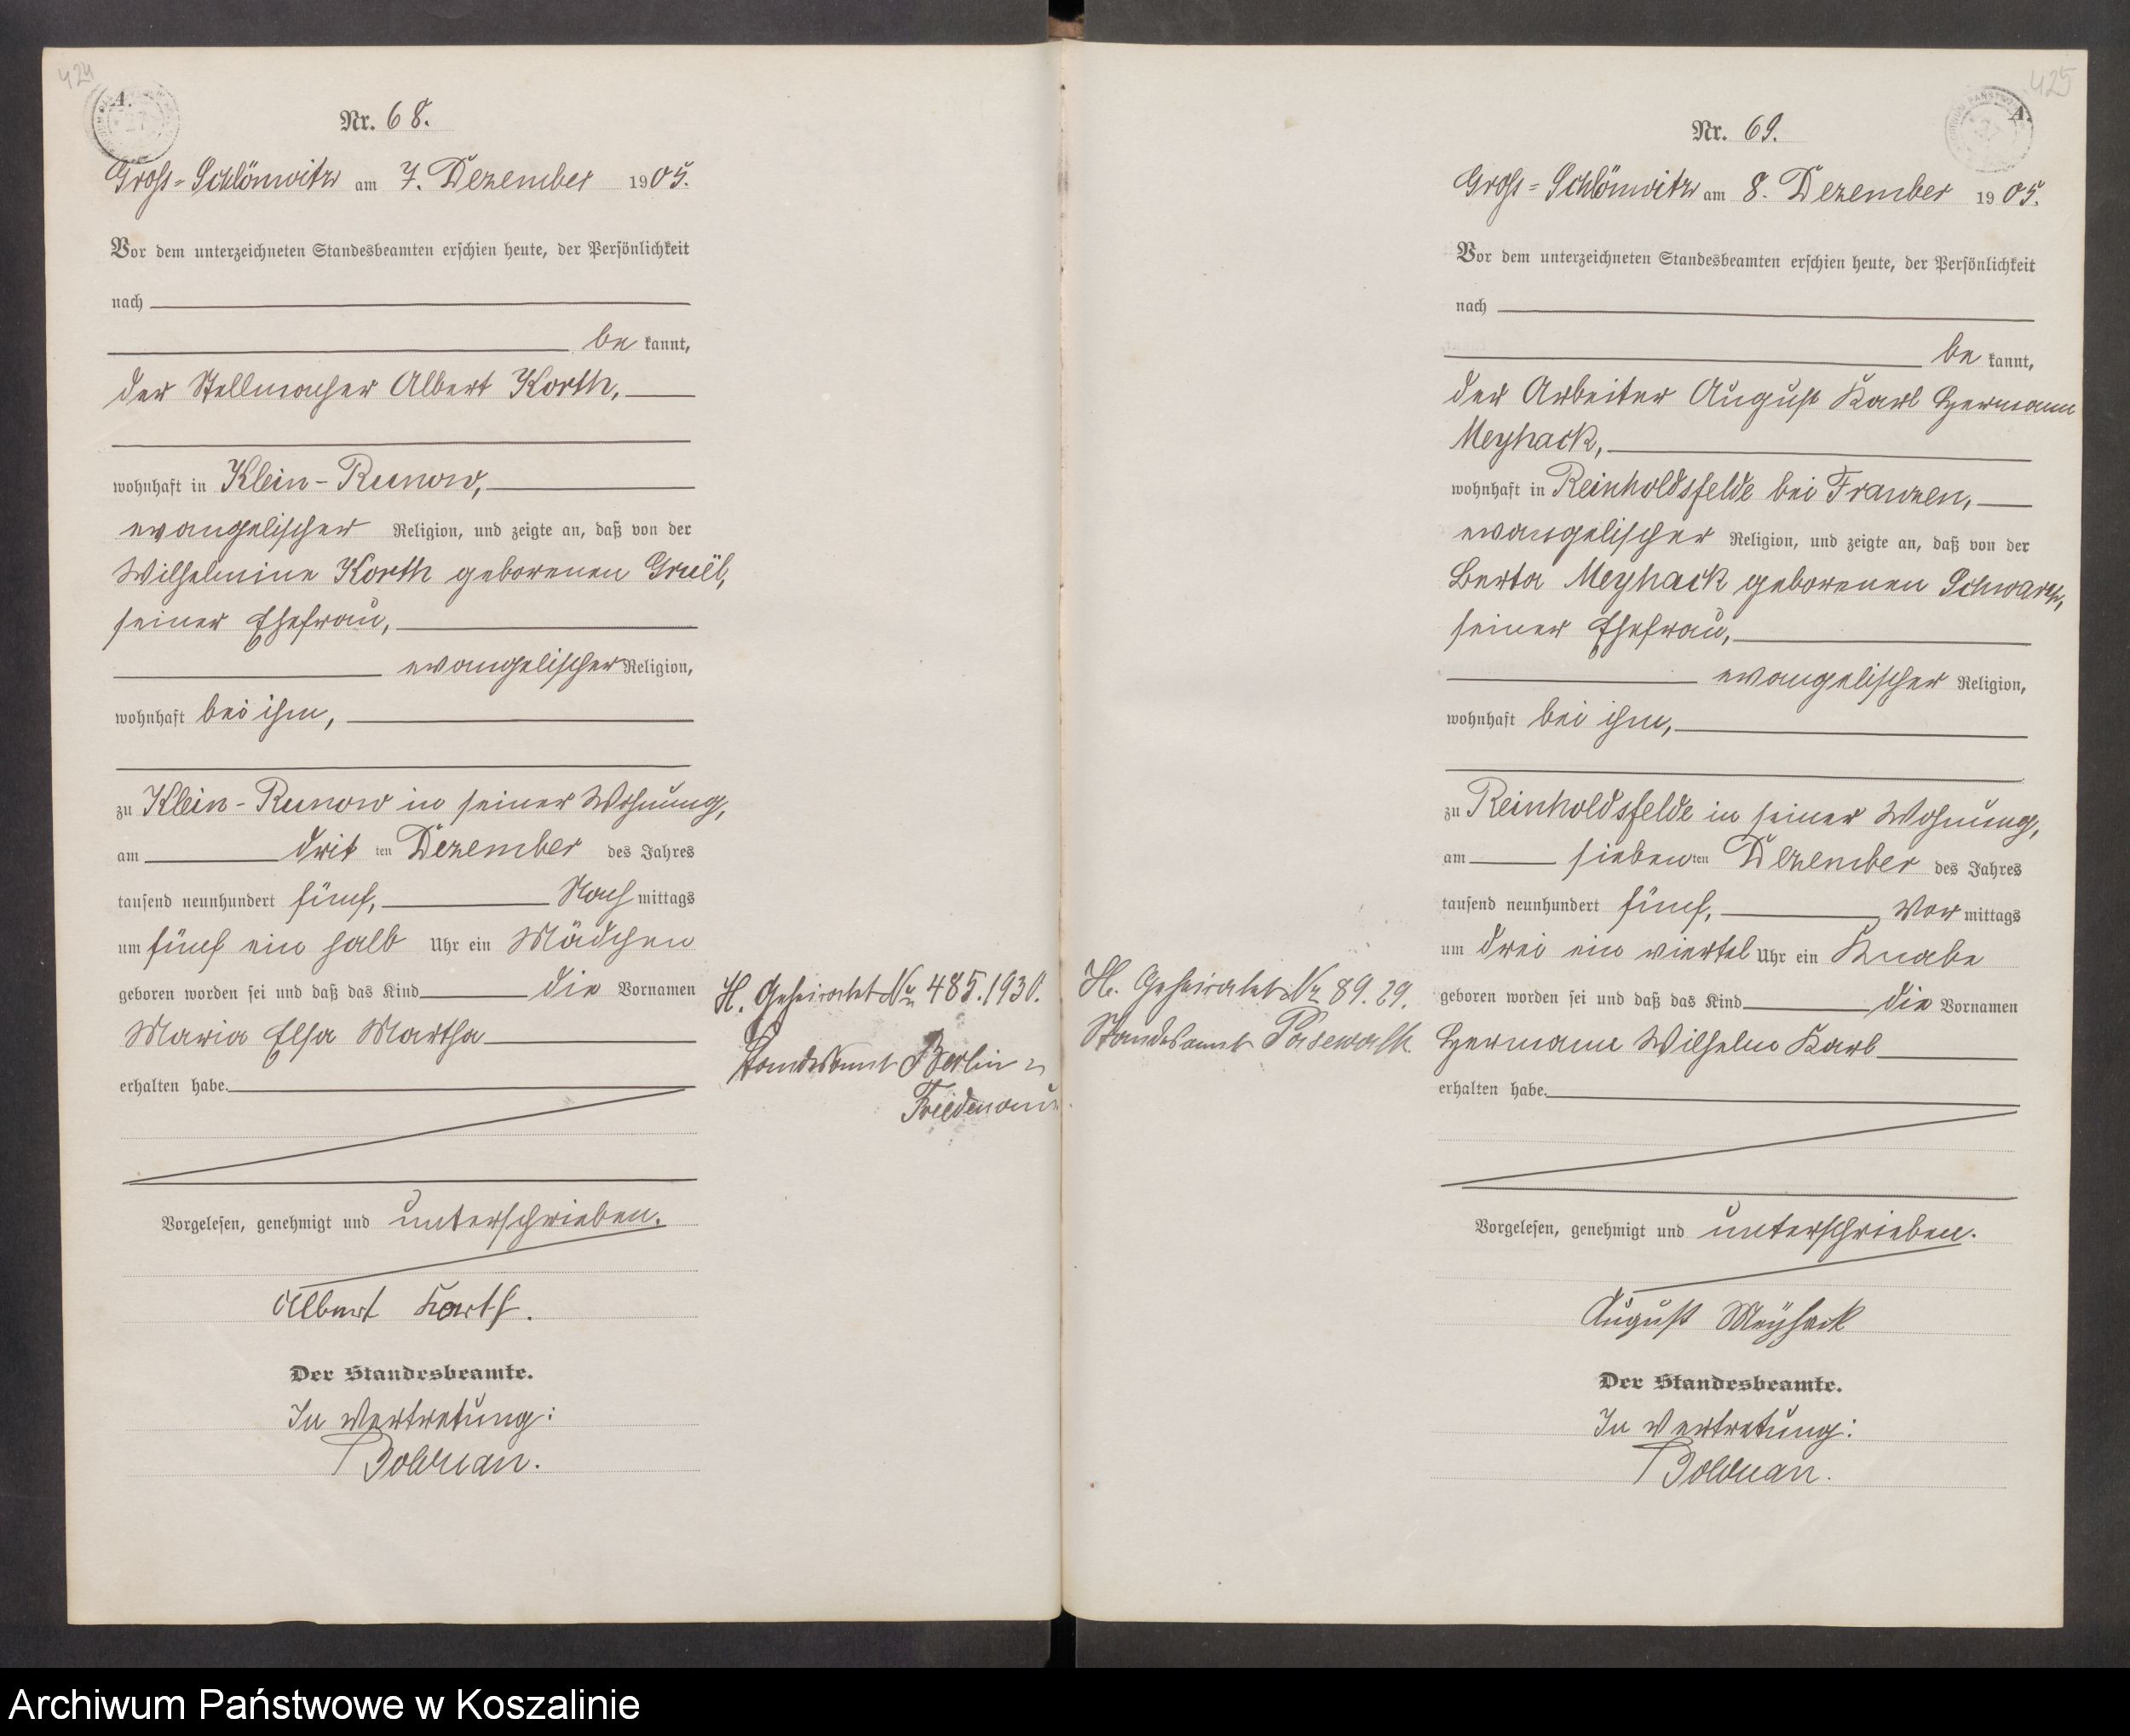 424
A.
Nr. 68.
Gross-Schlönwitz am 7. Dezember 1905.
Vor dem unterzeichneten Standesbeamten erschien heute, der Persönlichkeit
nach
be kannt,
der Stellmacher Albert Korth,
wohnhaft in Klein-Runow,
evangelischer Religion, und zeigte an, daß von der
Wilhelmine Korth geborenen Gruël,
seiner Ehefrau,
evangelischer Religion,
wohnhaft bei ihm,
zu Klein-Runow in seiner Wohnung,
am drit ten Dezember des Jahres
tausend neunhundert fünf, Nach mittags
um fünf ein halb Uhr ein Mädchen
geboren worden sei und daß das Kind die Vornamen
Maria Elsa Martha
erhalten habe.
Vorgelesen, genehmigt und unterschrieben.
Albert Korth.
Der Standesbeamte.
In Vertretung:
Bolduan.
H. Geheiratet Nr 485.1930.
Standesamt Berlin
Friedenau
425
A.
Nr. 69.
Gross-Schlönwitz am 8. Dezember 1905.
Vor dem unterzeichneten Standesbeamten erschien heute, der Persönlichkeit
nach
be kannt,
der Arbeiter August Karl Hermann
Meyhack,
wohnhaft in Reinholdsfelde bei Franzen,
evangelischer Religion, und zeigte an, daß von der
Berta Meyhack geborenen Schwarz,
seiner Ehefrau,
evangelischer Religion,
wohnhaft bei ihm,
zu Reinholdsfelde in seiner Wohnung,
am sieben ten Dezember des Jahres
tausend neunhundert fünf, Vor mittags
um drei ein viertel Uhr ein Knabe
geboren worden sei und daß das Kind die Vornamen
Hermann Wilhelm Karl
erhalten habe.
Vorgelesen, genehmigt und unterschrieben.
August Meyhack
Der Standesbeamte.
In Vertretung:
Bolduan.
H. Geheiratet Nr 89. 29.
Standesamt Pasewalk.
Archiwum Państwowe w Koszalinie